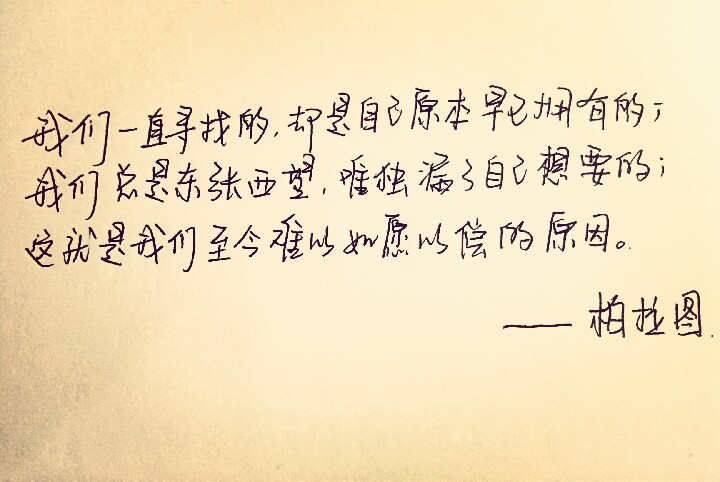 我们一直寻找的,却是自己原本早已拥有的;
我们总是东张西望,唯独漏了自己想要的;
这就是我们至今难以如愿以偿的原因。
——柏拉图.